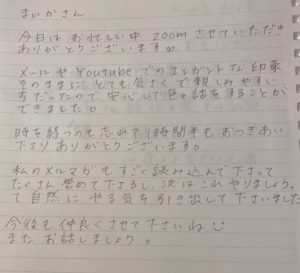 まいかさん
今日はお忙しい中 zoomさせていただき
ありがとうございます。
メールやYoutubeでのエレガントな印象
そのままに とても気さくで親しみやすい
方だったので 安心して色々話をすることが
できました。
時を経つのも忘れて1時間半も おつきあい
下さり ありがとうございます。
私のメルマガもすごく読み込んで下さって
たくさん誉めて下さるし、次はこれやりましょう。
て自然に やる気を引き出して下さいました
今後も仲良くさせて下さいね
また お話しましょう。